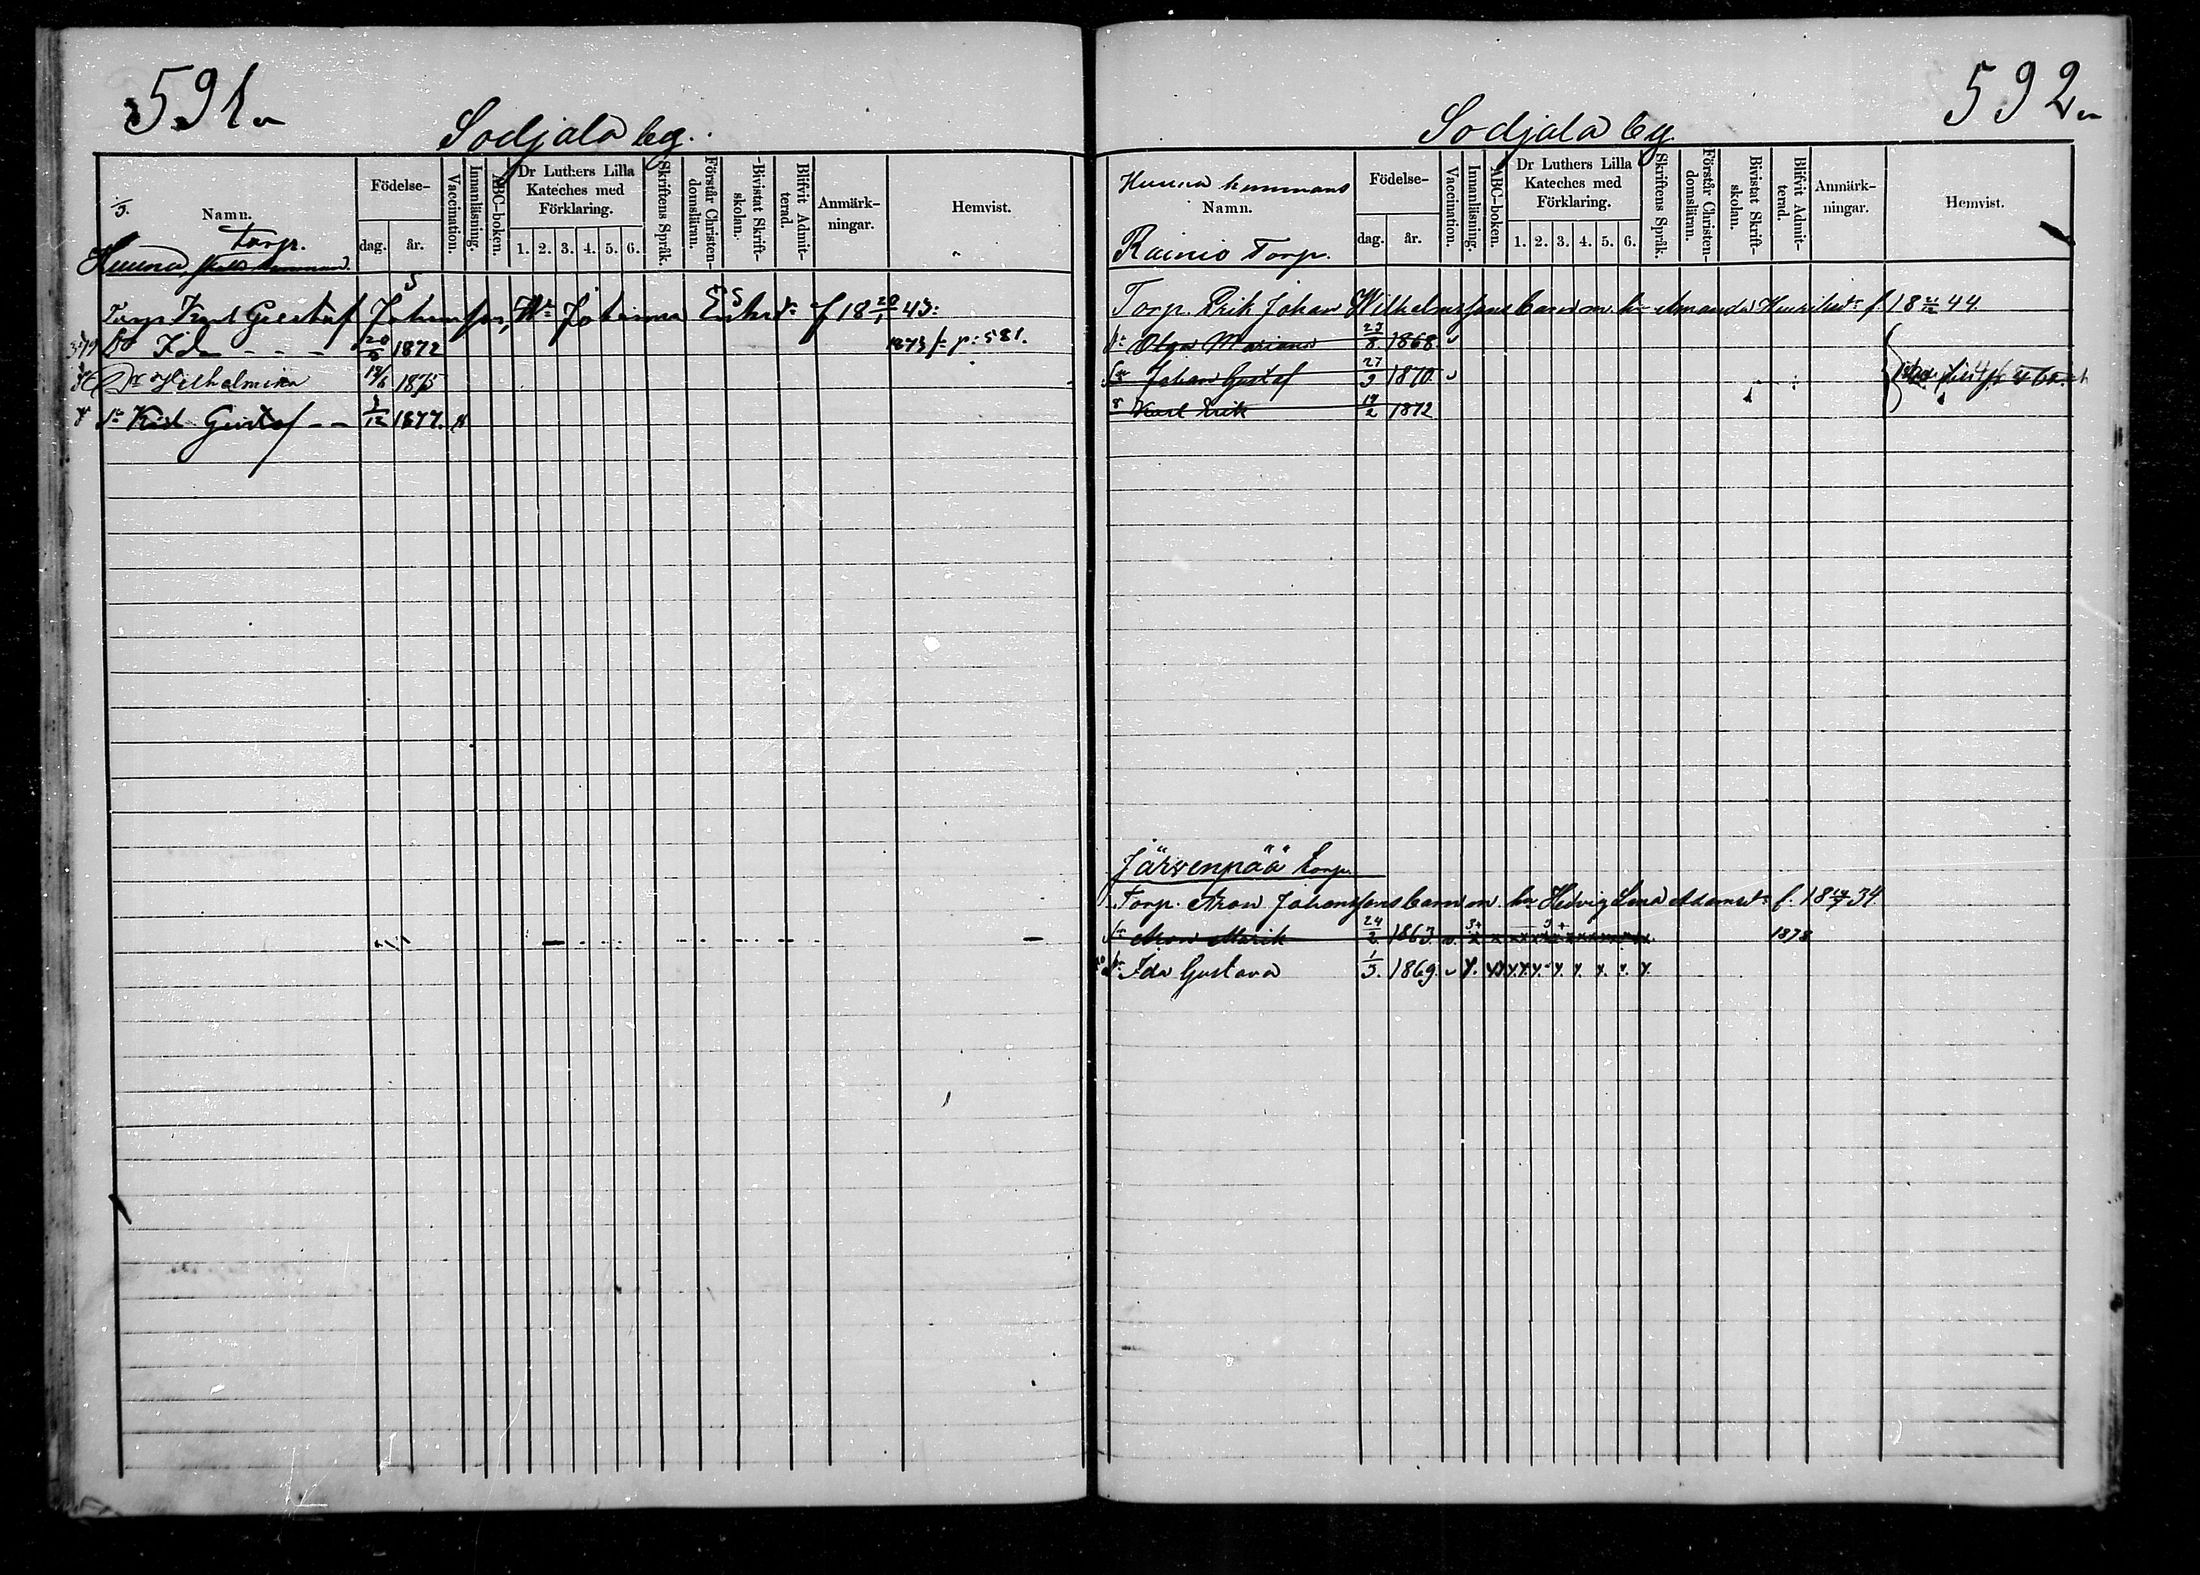 591
Sodjala by.
5.
Namn.
Födelse-
dag.
år.
Vaccination.
Innanläsning.
ABC-boken.
Dr Luthers Lilla
Kateches med
Förklaring.
1. 2. 3. 4. 5. 6.
Skriftens Språk.
Förstår Christen-
domsläran.
Bivistat Skrift-
skolan.
Blifvit Admit-
terad.
Anmärk-
ningar.
Hemvist.
Torp.
Torp Karl Gustaf Johansson, Johanna f 18 20/1 43:
Ida - - - 20/9 1872 1873 p: 581.
Wilhelmina 12/6 1875
Karl Gustaf - - 1/12 1877.
592
Sodjala by
Hunna hemmans
Namn.
Rainio Torp.
Födelse-
dag.
år.
Vaccination.
Innanläsning.
ABC-boken.
Dr Luthers Lilla
Kateches med
Förklaring.
1. 2. 3. 4. 5. 6.
Skriftens Språk.
Förstår Christen-
domsläran.
Bivistat Skrift-
skolan.
Blifvit Admit-
terad.
Anmärk-
ningar.
Hemvist.
Torp. Erik Johan Wilhelmssons barn m. h. Amanda Henriksdr f. 18 44.
Olga Mariana 23/8 1868
Johan Gustaf 27/9 1870
Karl Erik 14/2 1872
Järvenpää torp.
Torp. Aron Johanssons barn m. hu Hedvig Lena Adamsdr f. 18 34
Aron Marik 24/2 1863. 1878
Ida Gustava 1/3. 1869.